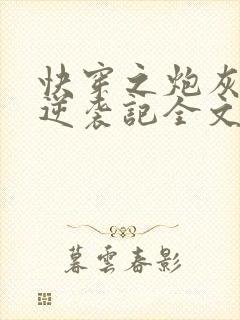 快穿之炮灰
逆袭記全文
暮雲春影